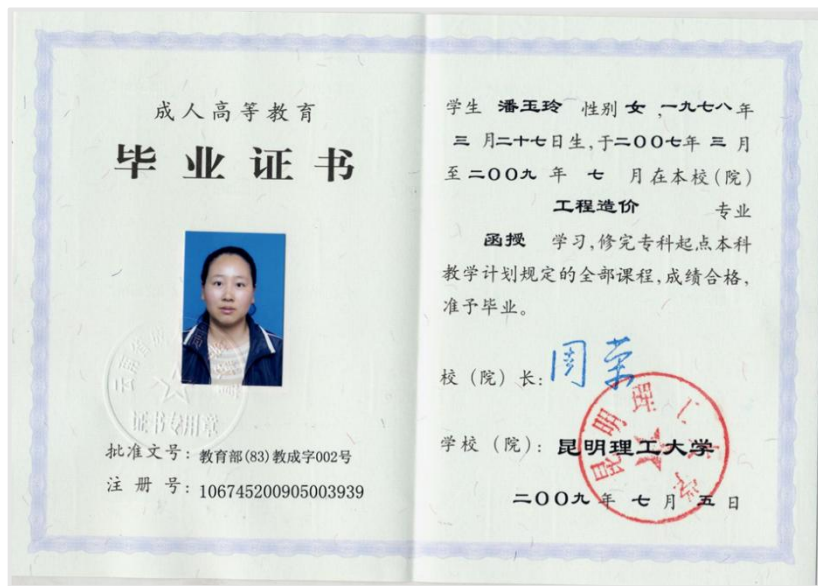 成人高等教育
毕业证书
云南省
证书专用章
批准文号：教育部(83)教成字002号
注册号：106745200905003939
学生 潘玉玲 性别 女，一九七八年
三月二十七日生，于二〇〇七年 三 月
至二〇〇九 年 七 月在本校(院)
工程造价 专业
函授 学习，修完专科起点本科
教学计划规定的全部课程，成绩合格，
准予毕业。
校（院）长：周荣
学校（院）：昆明理工大学
昆明理工大学
二〇〇九 年 七 月 五 日